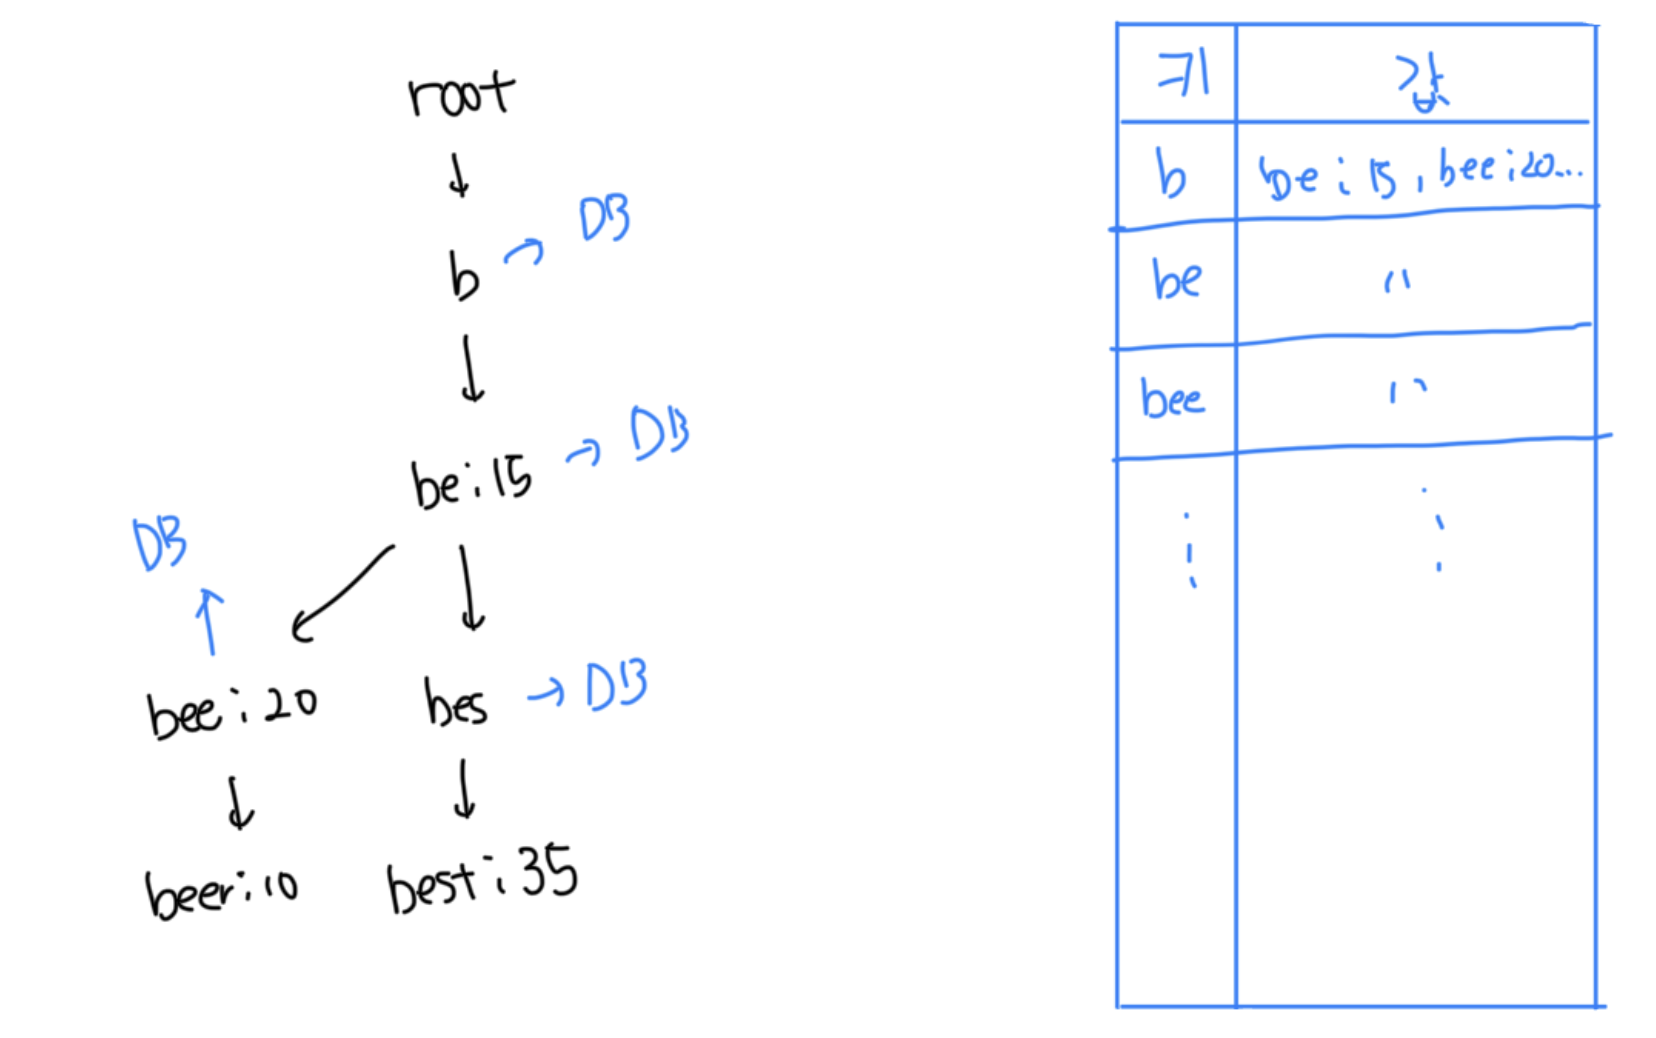 root
b → DB
be:15 → DB
DB
bee:20
bes → DB
beer:10
best:35
키 값
b be:15, bee:20...
be "
bee "